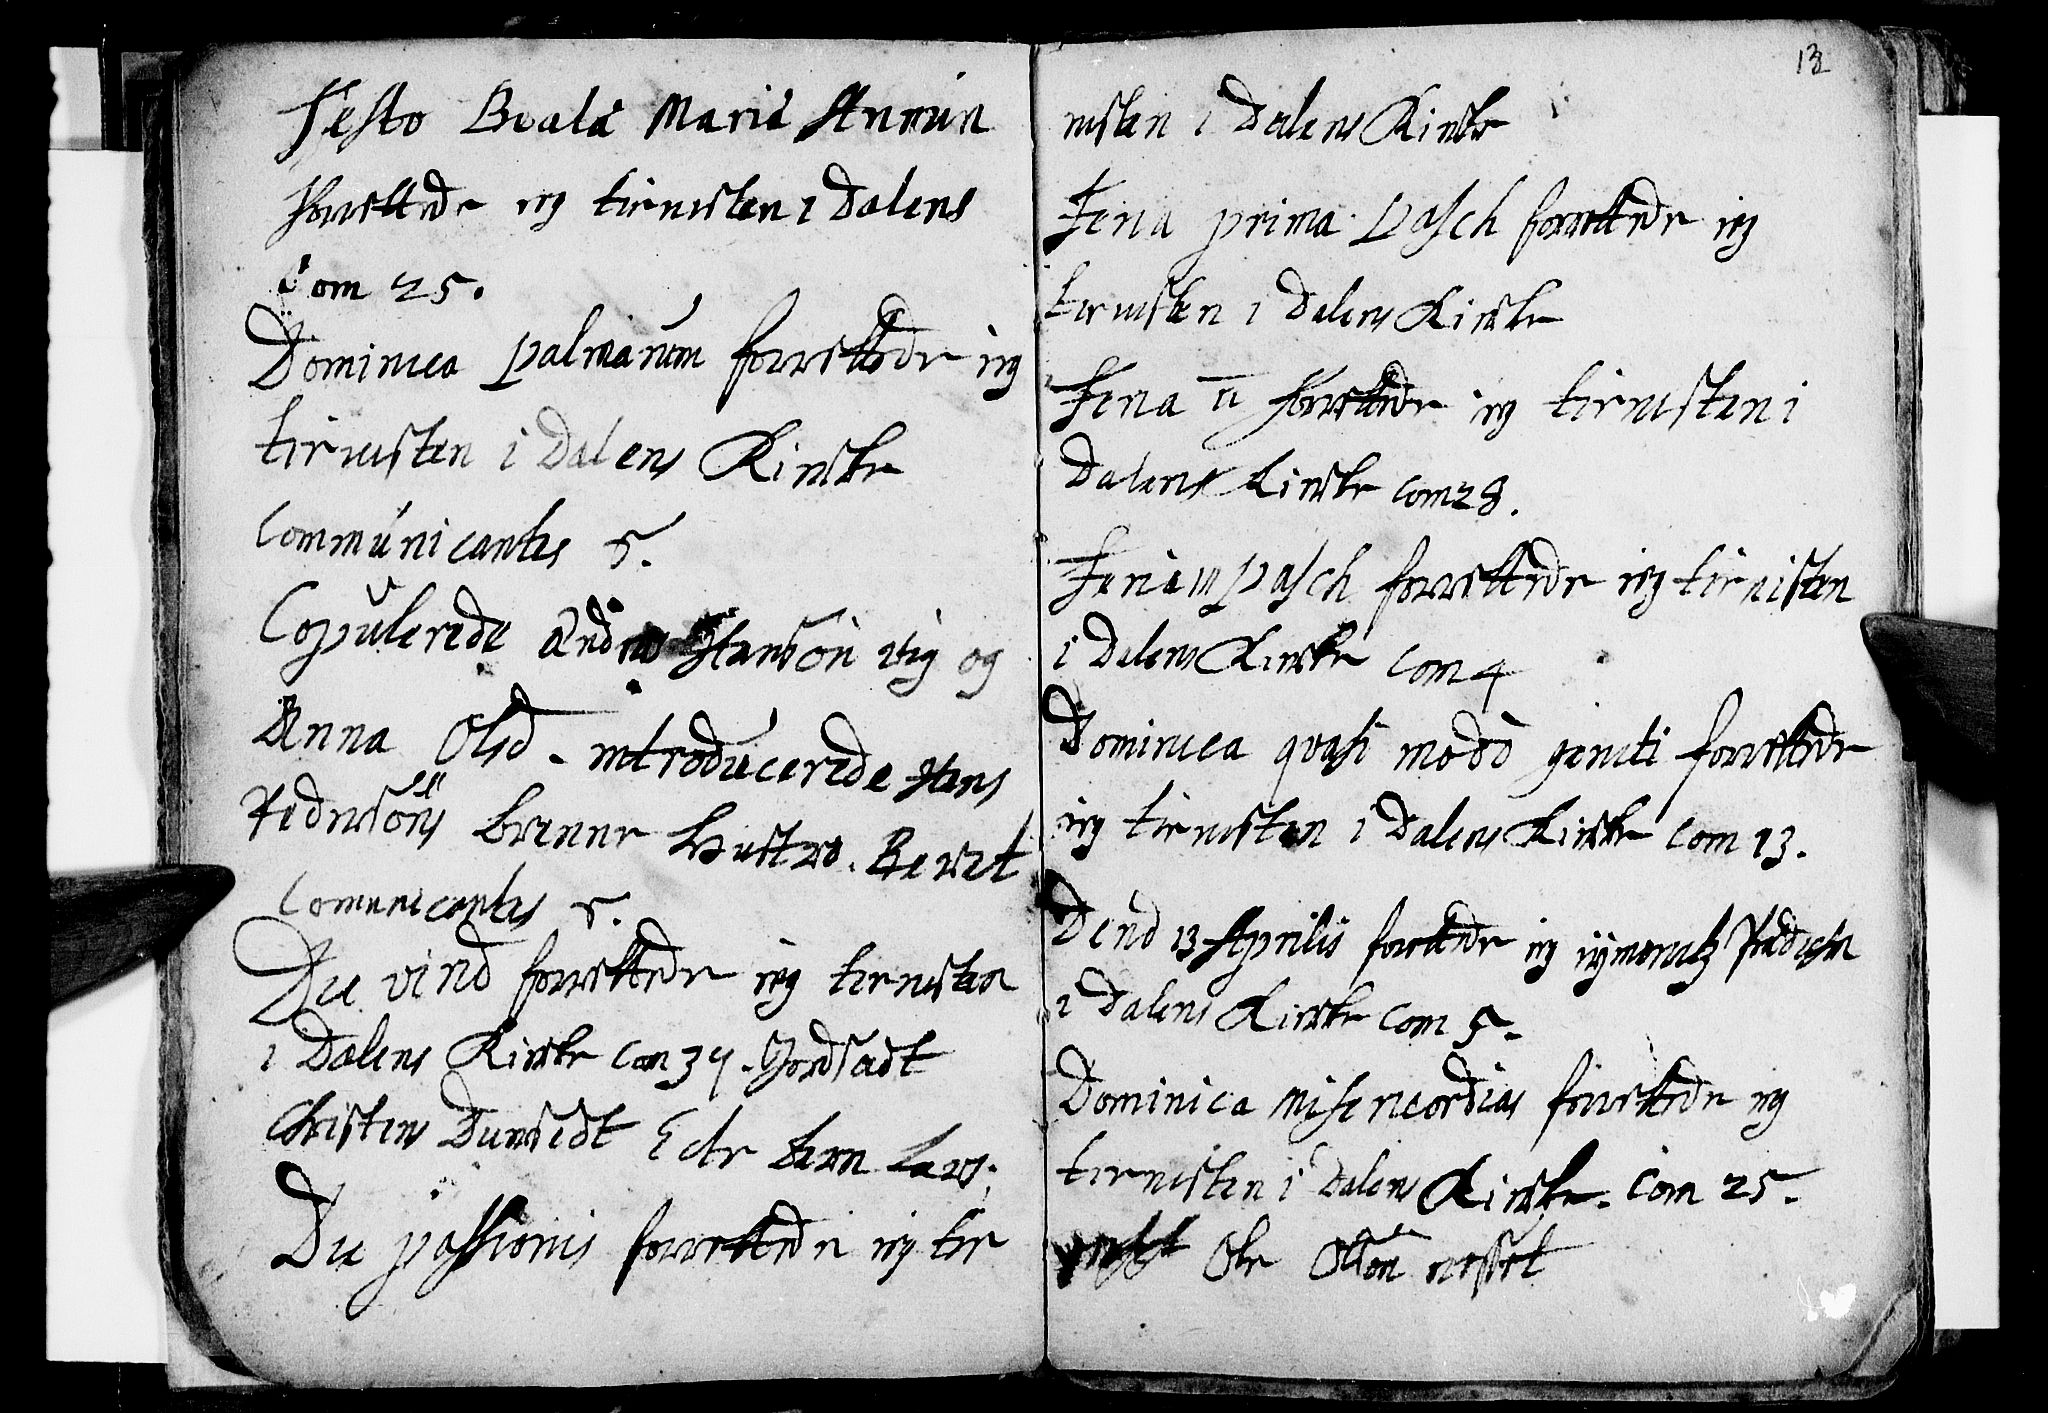 Festo Beatæ Mariæ Annun
Forrettede ieg tienisten i Dalens
Com 25.
Dominica palmarum forrettede ieg
tienisten i Dalens Kircke
Communicantes 5.
Copulerede Andres Hansøn Vig og
Anna Olsd. introducerede Hans
Pedersøns hustro. Berit
Comunicantes 5.
Die virid forrettede ieg tienisten
i Dalens Kircke Com 34. Jordsadt
Christens barn Lars.
Die passionis forrettede ieg tie
13
nisten i Dalens Kircke
Feria prima Pasch forrettede ieg
tienisten i Dalens Kircke
Feria II forrettede ieg tienisten i
Dalens Kircke Com 28.
Feria III Pasch forrettede ieg tienisten
i Dalens Kircke Com 4
Dominica quasi modo geniti forrettede
ieg tienisten i Dalens Kircke Com 13.
Dend 13 Aprilis forrettede ieg
i Dalens Kircke Com 5.
Dominica Misericordias forrettede ieg
tienisten i Dalens Kircke. Com 25.
Ole Olsøn